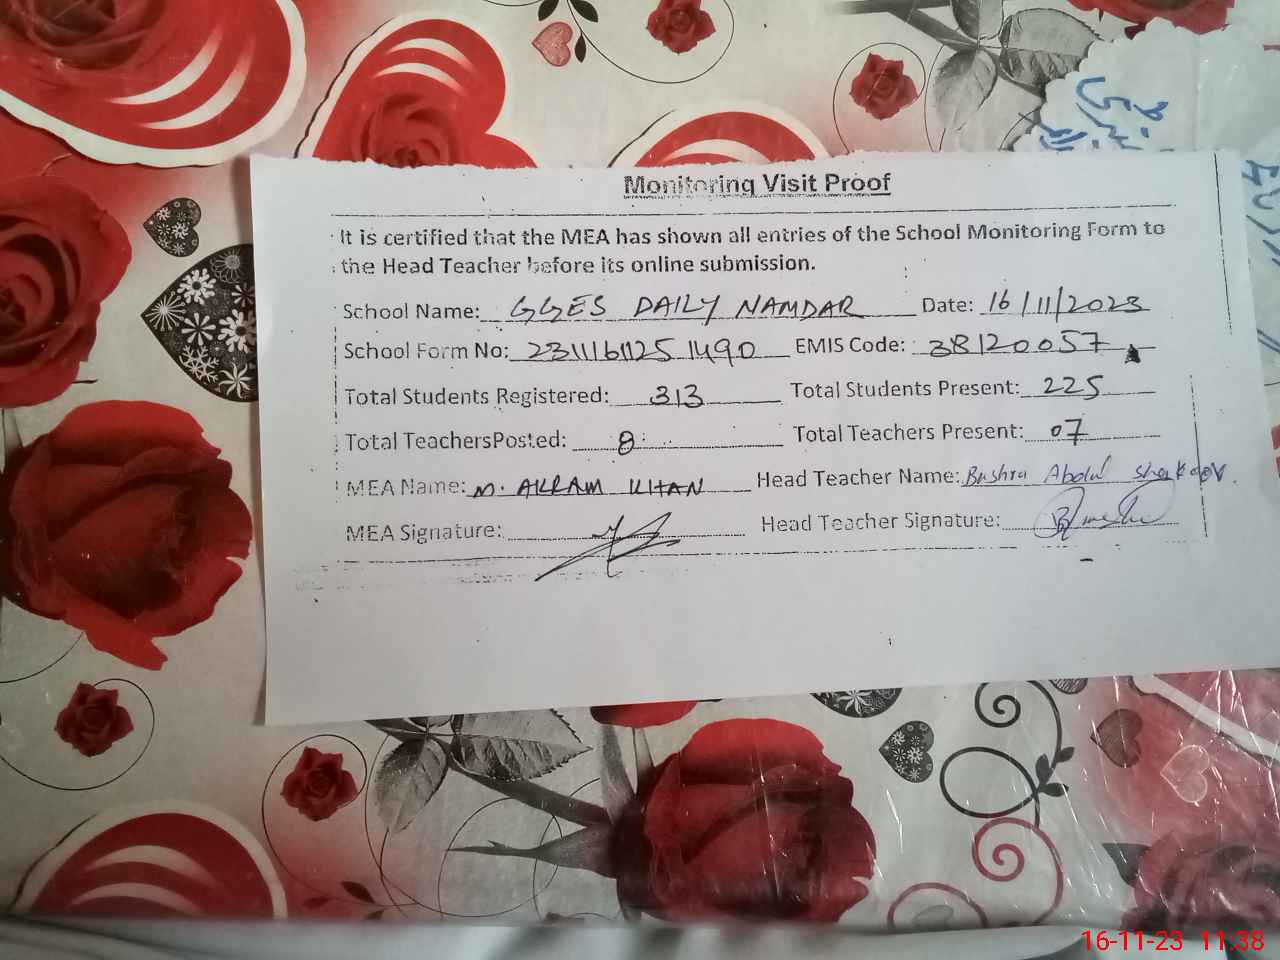 Monitoring Visit Proof
It is certified that the MEA has shown all entries of the School Monitoring Form to
the Head Teacher before its online submission.
School Name: GGES DAILY NAMDAR Date: 16/11/2023
School Form No: 23111611251490 EMIS Code: 38120057
Total Students Registered: 313 Total Students Present: 225
Total TeachersPosted: 8 Total Teachers Present: 07
MEA Name: M. AKRAM KHAN Head Teacher Name: Bushra Abdul Shakoor.
MEA Signature: Head Teacher Signature:
16-11-23 11:38